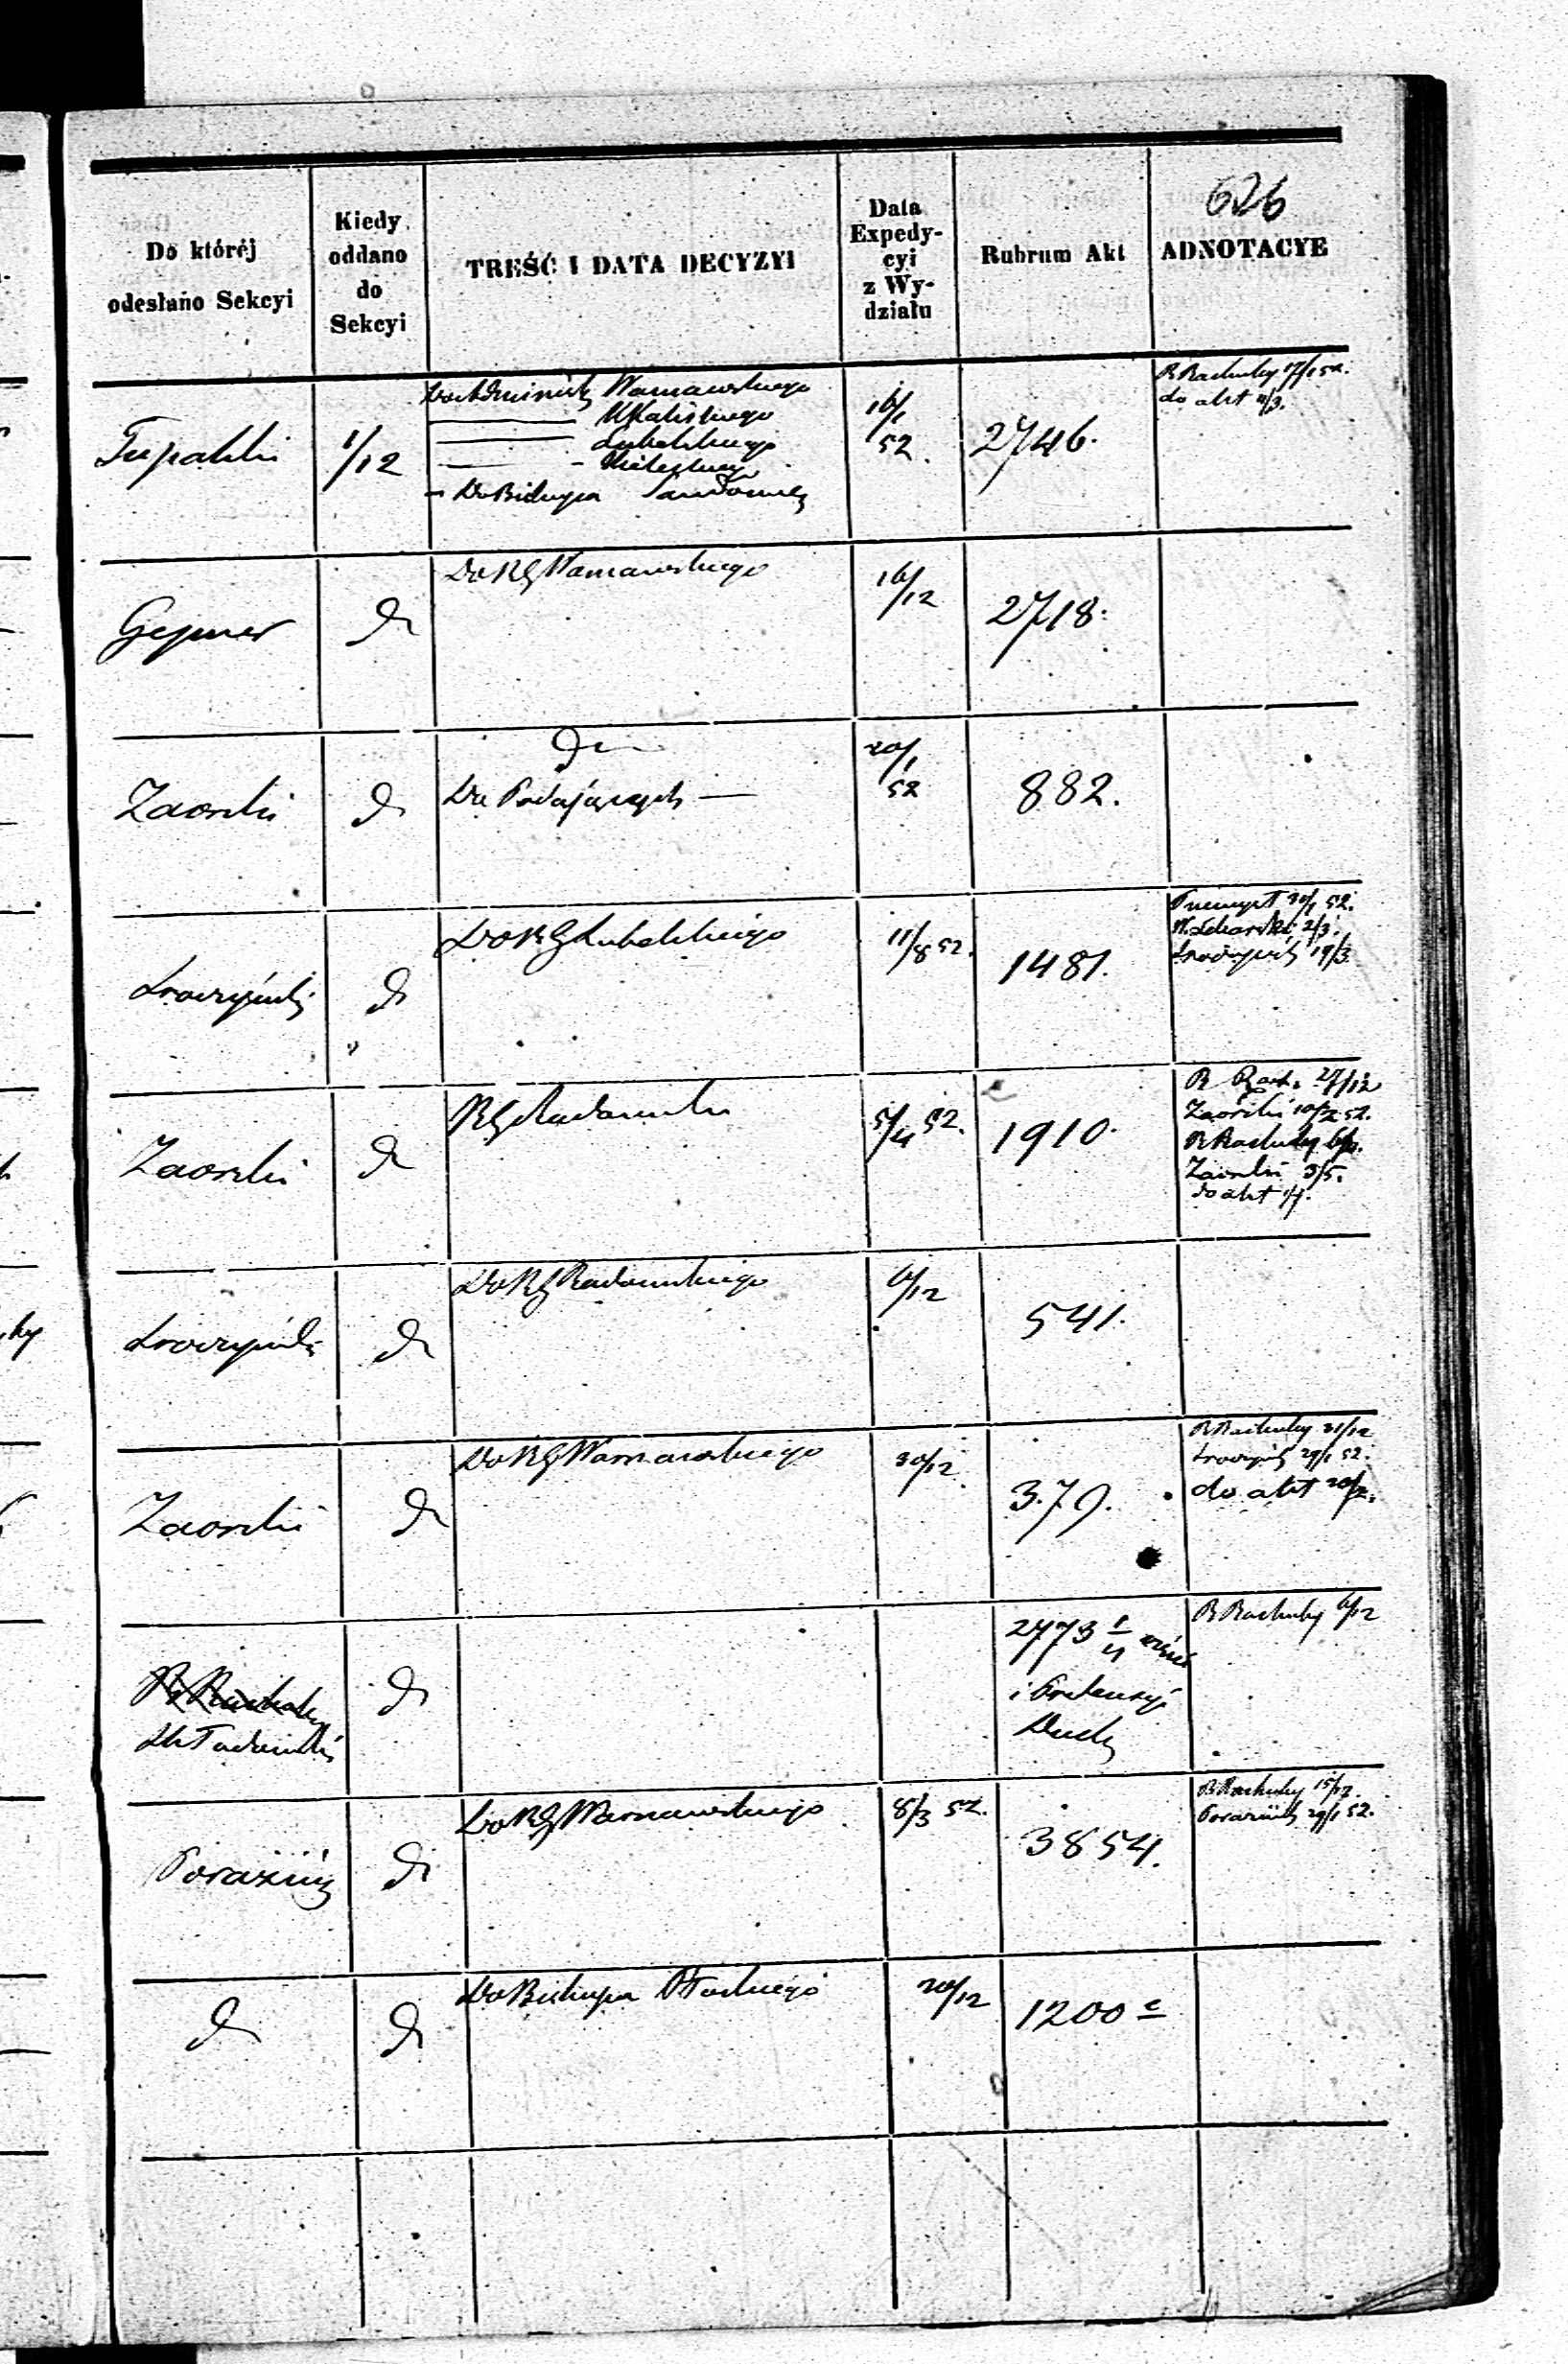 626
Do któréj odesłano Sekcyi
Kiedy oddano do Sekcyi
TREŚĆ I DATA DECYZYI
Data Expedycyi z Wydziału
Rubrum Akt
ADNOTACYE
Tupalski
1/12
Warszawskiego
Kaliskiego
Lubelskiego
Kieleckiego
Do Biskupa Sandomier
16/1
52.
2746.
R Rachuby 17/1 52.
do akt
Gejmer
d
Do RG Warszawskiego
16/12
2718.
Zaorski
d
d
Do Podających —
20/1
52
882.
d
Do RG Lubelskiego
11/8 52.
1481.
Przemysł 30/1 52.
2/3.
19/3
Zaorski
d
RG Radomski
5/4 52.
1910.
R Rach. 27/12
Zaorski 10/2 52.
R Rachuby
Zaorski 3/5.
do akt
d
Do RG Radomskiego
6/12
541.
Zaorski
d
Do RG Warszawskiego
30/12
379.
R Rachuby 31/12
29/1 52.
do akt 20/2.
R Rachuby
d
2773
i Pretensyi
R Rachuby 6/12
d
Do RG Warszawskiego
8/3 52.
3854.
R Rachuby 15/12.
29/1 52.
d
d
Do Biskupa Płockiego
20/12
1200 c